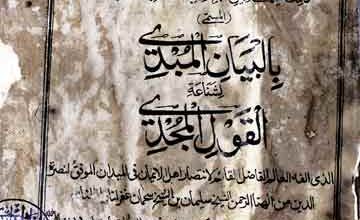 (المسمى)
بالبيان المبدي
لشناعة
القول المجدي
الذي الفه العالم الفاضل القائم لانتصار اهل الايمان في الميدان الموفق لنصرة
الدين من الرحمن الشيخ سليمان بن سحمان غفر الله له